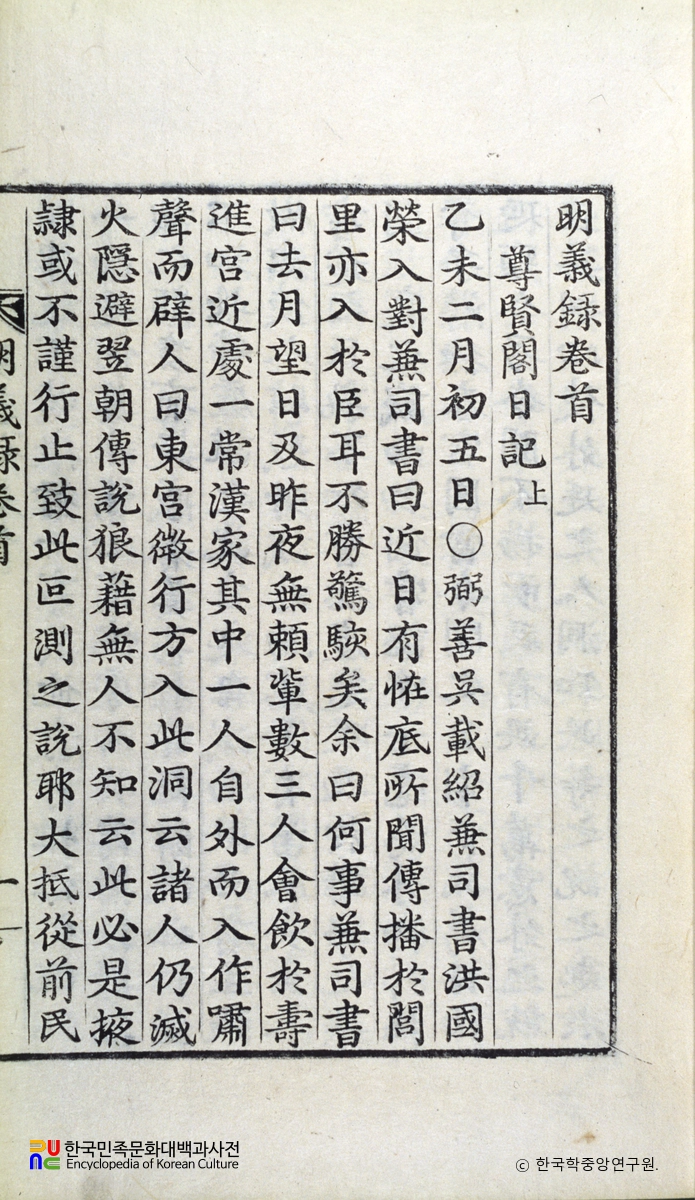 明義錄卷首
尊賢閣日記上
乙未二月初五日○弼善吳載紹兼司書洪國
榮入對兼司書曰近日有恠底所聞傳播於閭
里亦入於臣耳不勝驚駭矣余曰何事兼司書
曰去月望日及昨夜無賴輩數三人會飮於壽
進宮近處一常漢家其中一人自外而入作嘯
聲而辟人曰東宮微行方入此洞云諸人仍滅
火隱避翌朝傳說狼藉無人不知云此必是掖
隷或不謹行止致此叵測之說耶大抵從前民
明義錄卷首
一
한국민족문화대백과사전
Encyclopedia of Korean Culture
ⓒ 한국학중앙연구원.